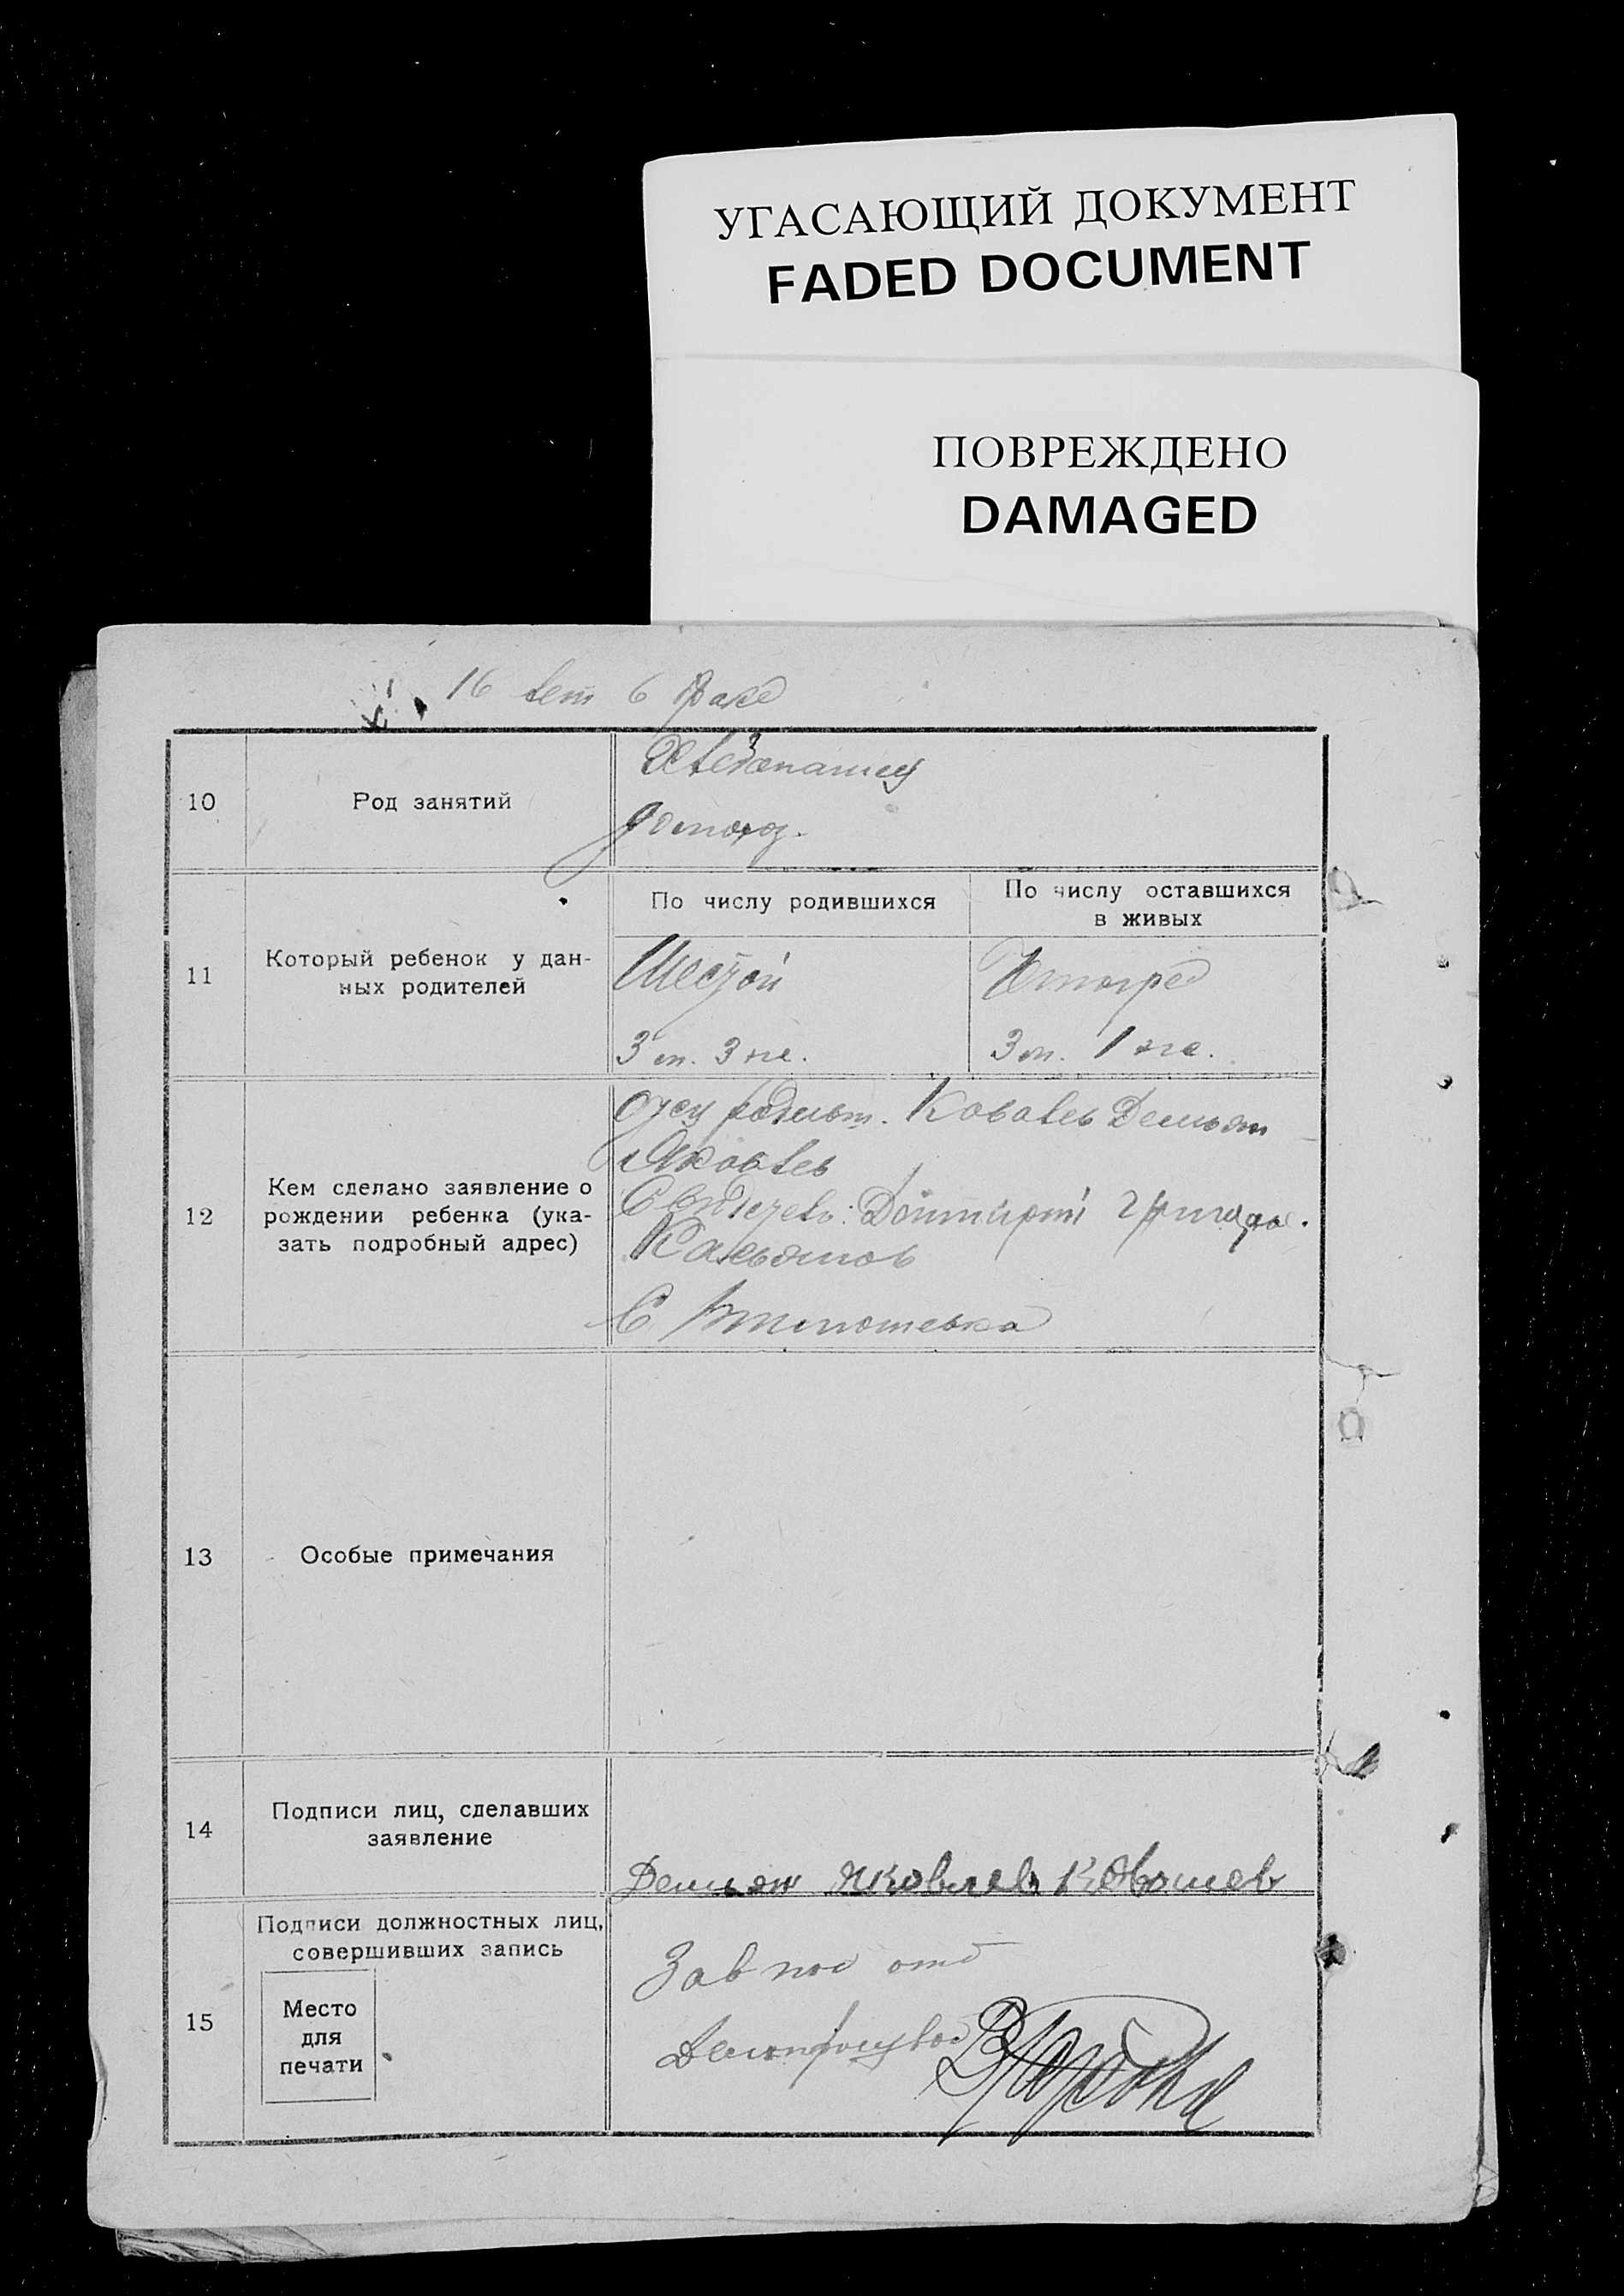 УГАСАЮЩИЙ ДОКУМЕНТ
FADED DOCUMENT
ПОВРЕЖДЕНО
DAMAGED
16 лет в браке
10
Род занятий
Хлебопашец
домохоз.
11
Который ребенок у дан-
ных родителей
По числу родившихся
По числу оставшихся
в живых
Шестой
3 м. 3 же.
3 м. 1 же.
12
Кем сделано заявление о
рождении ребенка (ука-
зать подробный адрес)
Отец Ковалев Демьян
Яковлев
Дмитрий
Касьянов
С
13
Особые примечания
14
Подписи лиц, сделавших
заявление
Демьян Яковлев
15
Подписи должностных лиц,
совершивших запись
Место
для
печати
Зав под отд